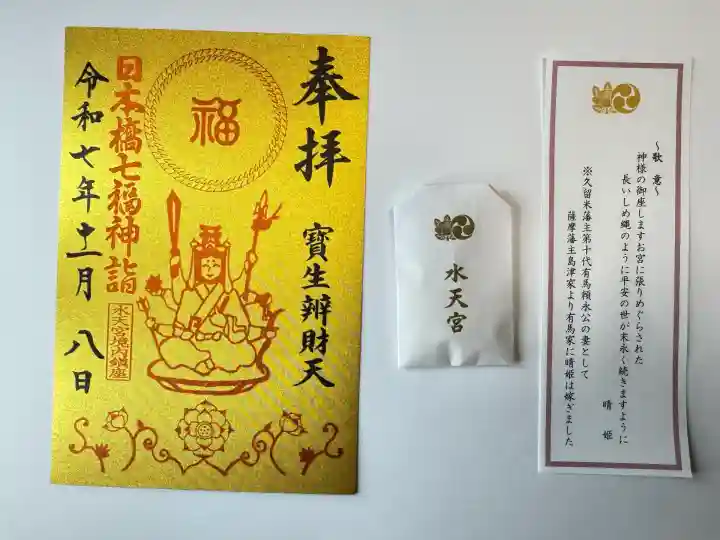 奉拝
寶生辨財天
福
日本橋七福神詣
水天宮境内鎮座
令和七年十一月八日
水天宮
～歌意～
神様の御座しますお宮に張りめぐらされた
長いしめ縄のように平安の世が末永く続きますように
晴姫
※久留米藩主第十代有馬頼永公の妻として
薩摩藩主島津家より有馬家に晴姫は嫁ぎました